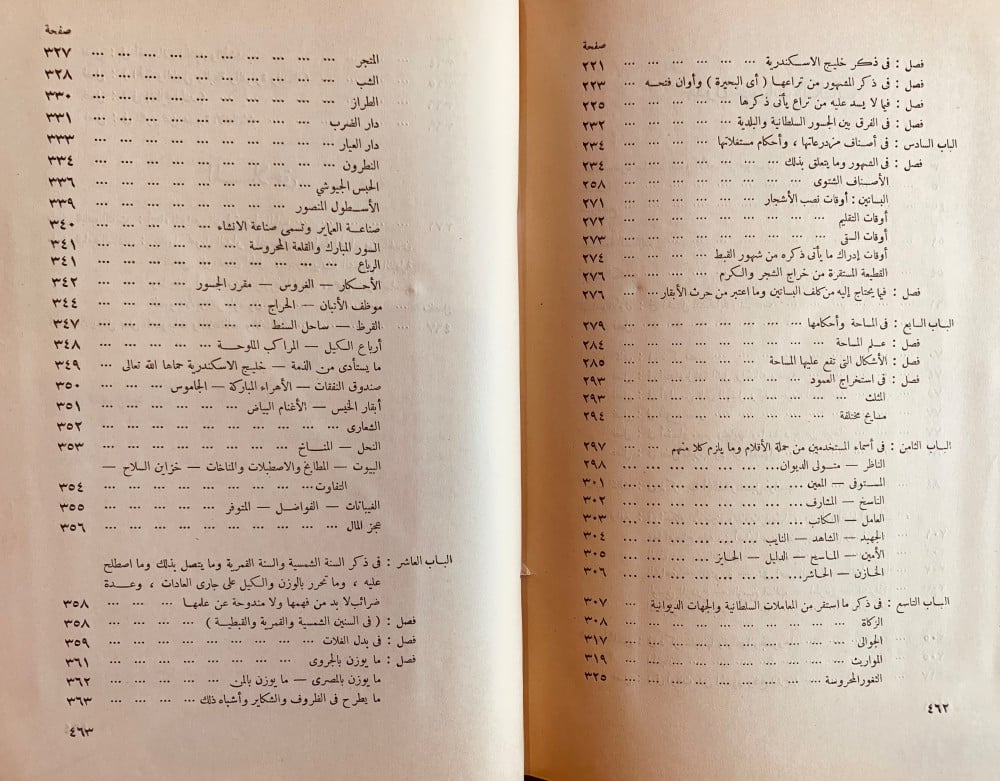 صفحة
فصل : فى ذكر خليج الاسكندرية ... ... ... ... ... ٢٢١
فصل : فى ذكر المشهور من تراعها ( أى البحيرة ) وأوان فتحه ... ٢٢٣
فصل : فيما لا يسد عليه من تراع يأتى ذكرها ... ... ... ... ٢٢٥
فصل : فى الفرق بين الجسور السلطانية والبلدية ... ... ... ... ٢٣٢
الباب السادس : فى أصناف مزدرعاتها ، وأحكام مستغلاتها ... ... ... ... ٢٣٤
فصل : فى الشهور وما يتعلق بذلك ... ... ... ... ... ٢٣٤
الأصناف الشتوى ... ... ... ... ... ... ٢٥٨
البساتين : أوقات نصب الأشجار ... ... ... ... ... ٢٧١
أوقات التقليم ... ... ... ... ... ... ... ٢٧٢
أوقات السقى ... ... ... ... ... ... ... ٢٧٣
أوقات إدراك ما يأتى ذكره من شهور القبط ... ... ... ٢٧٤
القطيعة المستقرة من خراج الشجر والكرم ... ... ... ... ٢٧٦
فصل : فيما يحتاج إليه من كلف البساتين وما اعتبر من حرث الأبقار ... ... ٢٧٦
الباب السابع : فى المساحة وأحكامها ... ... ... ... ... ... ٢٧٩
فصل : علم المساحة ... ... ... ... ... ... ... ٢٨٤
فصل : الأشكال التى تقع عليها المساحة ... ... ... ... ... ٢٨٥
فصل : فى استخراج العمود ... ... ... ... ... ... ٢٩٣
المثلث ... ... ... ... ... ... ... ... ٢٩٣
مسايح مختلفة ... ... ... ... ... ... ... ٢٩٤
الباب الثامن : فى أسماء المستخدمين من حملة الأقلام وما يلزم كلا منهم ... ... ٢٩٧
الناظر — متولى الديوان ... ... ... ... ... ... ٢٩٨
المستوفى — المعين ... ... ... ... ... ... ٣٠١
الناسخ — المشارف ... ... ... ... ... ... ٣٠٢
العامل — الكاتب ... ... ... ... ... ... ٣٠٣
الجهبد — الشاهد — النايب ... ... ... ... ... ٣٠٤
الأمين — الماسح — الدليل — الحايز ... ... ... ... ٣٠٥
الخازن — الحاشر ... ... ... ... ... ... ٣٠٦
الباب التاسع : فى ذكر ما استقر من المعاملات السلطانية والجهات الديوانية ... ٣٠٧
الزكاة ... ... ... ... ... ... ... ... ٣٠٨
الجوالى ... ... ... ... ... ... ... ... ٣١٧
المواريث ... ... ... ... ... ... ... ... ٣١٩
الثغور المحروسة ... ... ... ... ... ... ... ٣٢٥
٤٦٢
صفحة
المتجر ... ... ... ... ... ... ... ... ... ٣٢٧
الشب ... ... ... ... ... ... ... ... ... ٣٢٨
الطراز ... ... ... ... ... ... ... ... ... ٣٣٠
دار الضرب ... ... ... ... ... ... ... ... ٣٣١
دار العيار ... ... ... ... ... ... ... ... ... ٣٣٣
النطرون ... ... ... ... ... ... ... ... ... ٣٣٤
الحبس الجيوشى ... ... ... ... ... ... ... ... ٣٣٦
الأسطول المنصور ... ... ... ... ... ... ... ٣٣٩
صناعة العماير وتسمى صناعة الانشاء ... ... ... ... ... ٣٤٠
السور المبارك والقلعة المحروسة ... ... ... ... ... ... ٣٤١
الرباع ... ... ... ... ... ... ... ... ... ٣٤١
الأحكار — الغروس — مقرر الجسور ... ... ... ... ... ٣٤٢
موظف الأتبان — الخراج ... ... ... ... ... ... ٣٤٤
القرظ — ساحل السنط ... ... ... ... ... ... ٣٤٧
أرباع الكيل — المراكب الملوحة ... ... ... ... ... ٣٤٨
ما يستأدى من الذمة — خليج الاسكندرية حماها الله تعالى ... ... ٣٤٩
صندوق النفقات — الأهراء المباركة — الجاموس ... ... ... ... ٣٥٠
أبقار الخيس — الأغنام البياض ... ... ... ... ... ... ٣٥١
الشعارى ... ... ... ... ... ... ... ... ... ٣٥٢
النحل — المنساخ ... ... ... ... ... ... ... ٣٥٣
البيوت — المطابخ والاصطبلات والمناخات — خزاين السلاح —
التفاوت ... ... ... ... ... ... ... ... ... ٣٥٤
الغيباتات — الفواضل — المتوفر ... ... ... ... ... ٣٥٥
عجز المال ... ... ... ... ... ... ... ... ... ٣٥٦
الباب العاشر : فى ذكر السنة الشمسية والسنة القمرية وما يتصل بذلك وما اصطلح
عليه ، وما تحرر بالوزن والكيل على جارى العادات ، وعدة
ضرائب لا بد من فهمها ولا مندوحة عن علمها ... ... ... ٣٥٨
فصل : ( فى السنين الشمسية والقمرية والقبطية ) ... ... ... ... ٣٥٨
فصل : فى بدل الغلات ... ... ... ... ... ... ... ٣٥٩
فصل : ما يوزن بالجروى ... ... ... ... ... ... ... ٣٦١
ما يوزن بالمصرى — ما يوزن بالمن ... ... ... ... ... ٣٦٢
ما يطرح فى الظروف والشكاير وأشباه ذلك ... ... ... ... ٣٦٣
٤٦٣